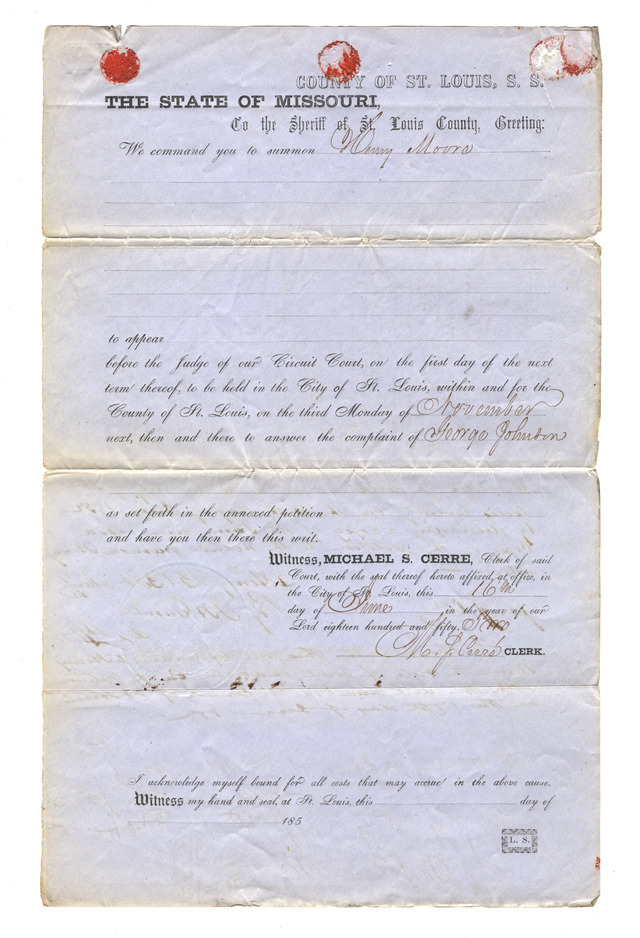 COUNTY OF ST. LOUIS, S. S.
THE STATE OF MISSOURI,
To the Sheriff of St. Louis County, Greeting:
We command you to summon Henry Moore
to appear
before the Judge of our Circuit Court, on the first day of the next
term thereof, to be held in the City of St. Louis, within and for the
County of St. Louis, on the third Monday of November
next, then and there to answer the complaint of George Johnson
as set forth in the annexed petition
and have you then there this writ.
Witness, MICHAEL S. CERRE, Clerk of said
Court, with the seal thereof hereto affixed, at office, in
the City of St Louis, this 16th
day of June in the year of our
Lord eighteen hundred and fifty.
M. S. Cerré CLERK.
I acknowledge myself bound for all costs that may accrue in the above cause.
Witness my hand and seal, at St. Louis, this day of
185
L. S.